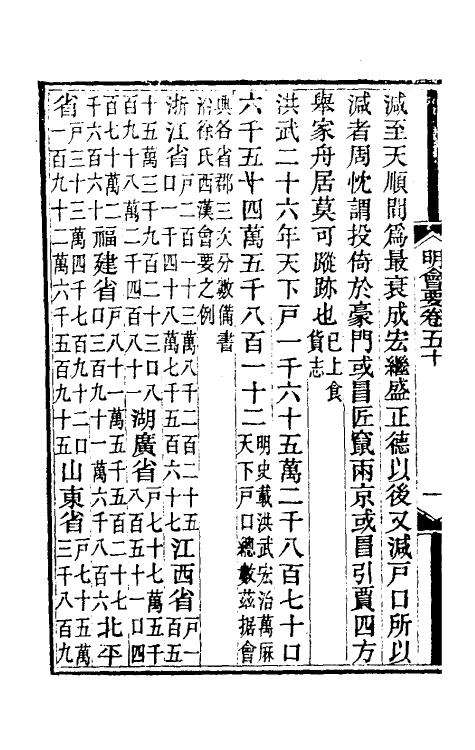 明會要卷五十
一
減至天順間爲最衰成宏繼盛正德以後又減戸口所以
減者周忱謂投倚於豪門或冒匠竄兩京或冒引賈四方
舉家舟居莫可蹤跡也已上食貨志
洪武二十六年天下戸一千六十五萬二千八百七十口
六千五十四萬五千八百一十二明史載洪武宏治萬厤天下戸口總數茲据會
典各省郡三次分數備書沿徐氏西漢會要之例
浙江省戸二百一十三萬八千二百二十五口一千四十八萬七千五百六十七江西省戸一百五
十五萬三千九百二十三口八百九十八萬二千四百八十一湖廣省戸七十七萬五千八百五十一口四
百七十萬二千六百六十福建省戸八十一萬五千五百二十七口三百九十一萬六千八百六北平
省戸三十三萬四千七百九十二口一百九十二萬六千五百九十五山東省戸七十五萬三千八百九